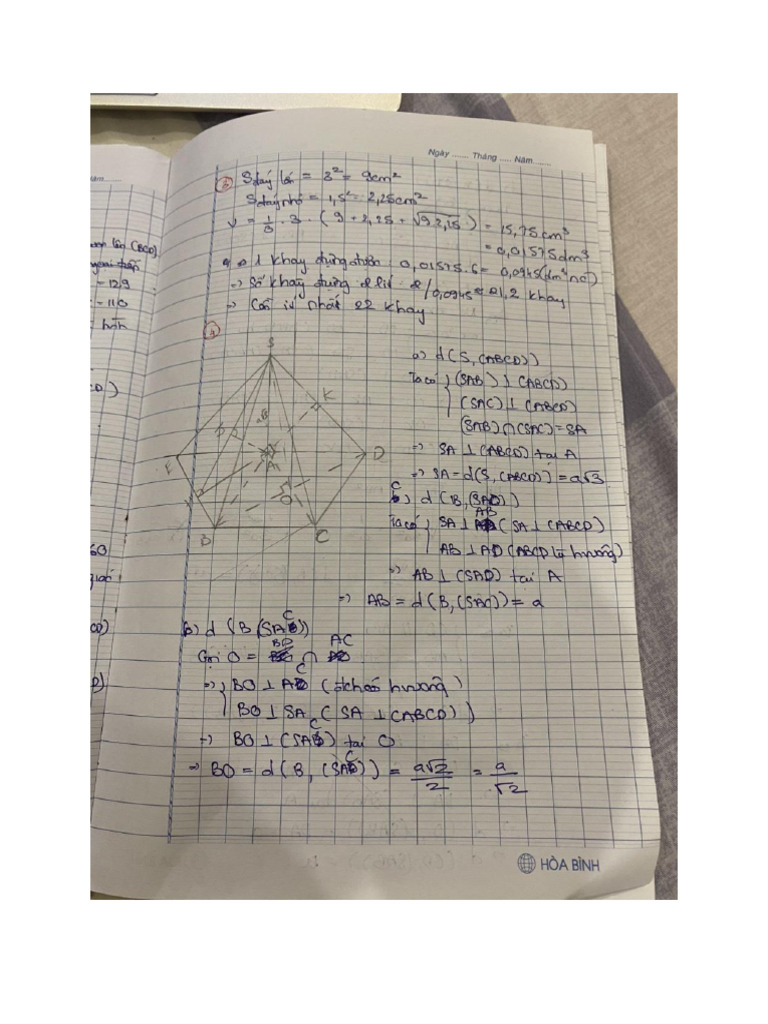 Ngày ...... Tháng ..... Năm.......
③ Sđáy lớn = 3² = 9cm²
Sđáy nhỏ = 1,5² = 2,25cm²
V = 1/3 . 3 . ( 9 + 2,25 + √9.2,25 ) = 15,75cm³
= 0,01575dm³
1 khay đựng được : 0,01575.6 = 0,0945(dm³
=> Số khay đựng 2 lít : 2/0,0945 ≈ 21,2 khay
=> Cần ít nhất 22 khay
④
S
K
E
A
D
O
B
C
a) d(S,(ABCD))
Ta có { (SAB) ⊥ (ABCD)
(SAC) ⊥ (ABCD)
(SAB) ∩ (SAC) = SA
=> SA ⊥ (ABCD) tại A
=> SA = d(S,(ABCD)) = a√3
c) d(B,(SAD))
Ta có { SA ⊥ AB (SA ⊥ (ABCD)
AB ⊥ AD (ABCD là h vuông)
=> AB ⊥ (SAD) tại A
=> AB = d(B,(SAC)) = a
b) d (B,(SAC))
Gọi O = BD ∩ AC
=> { BO ⊥ AC ( h vuông)
BO ⊥ SA ( SA ⊥ (ABCD))
=> BO ⊥ (SAC) tại O
=> BO = d(B, (SAC)) = a√2/2 = a/√2
HÒA BÌNH